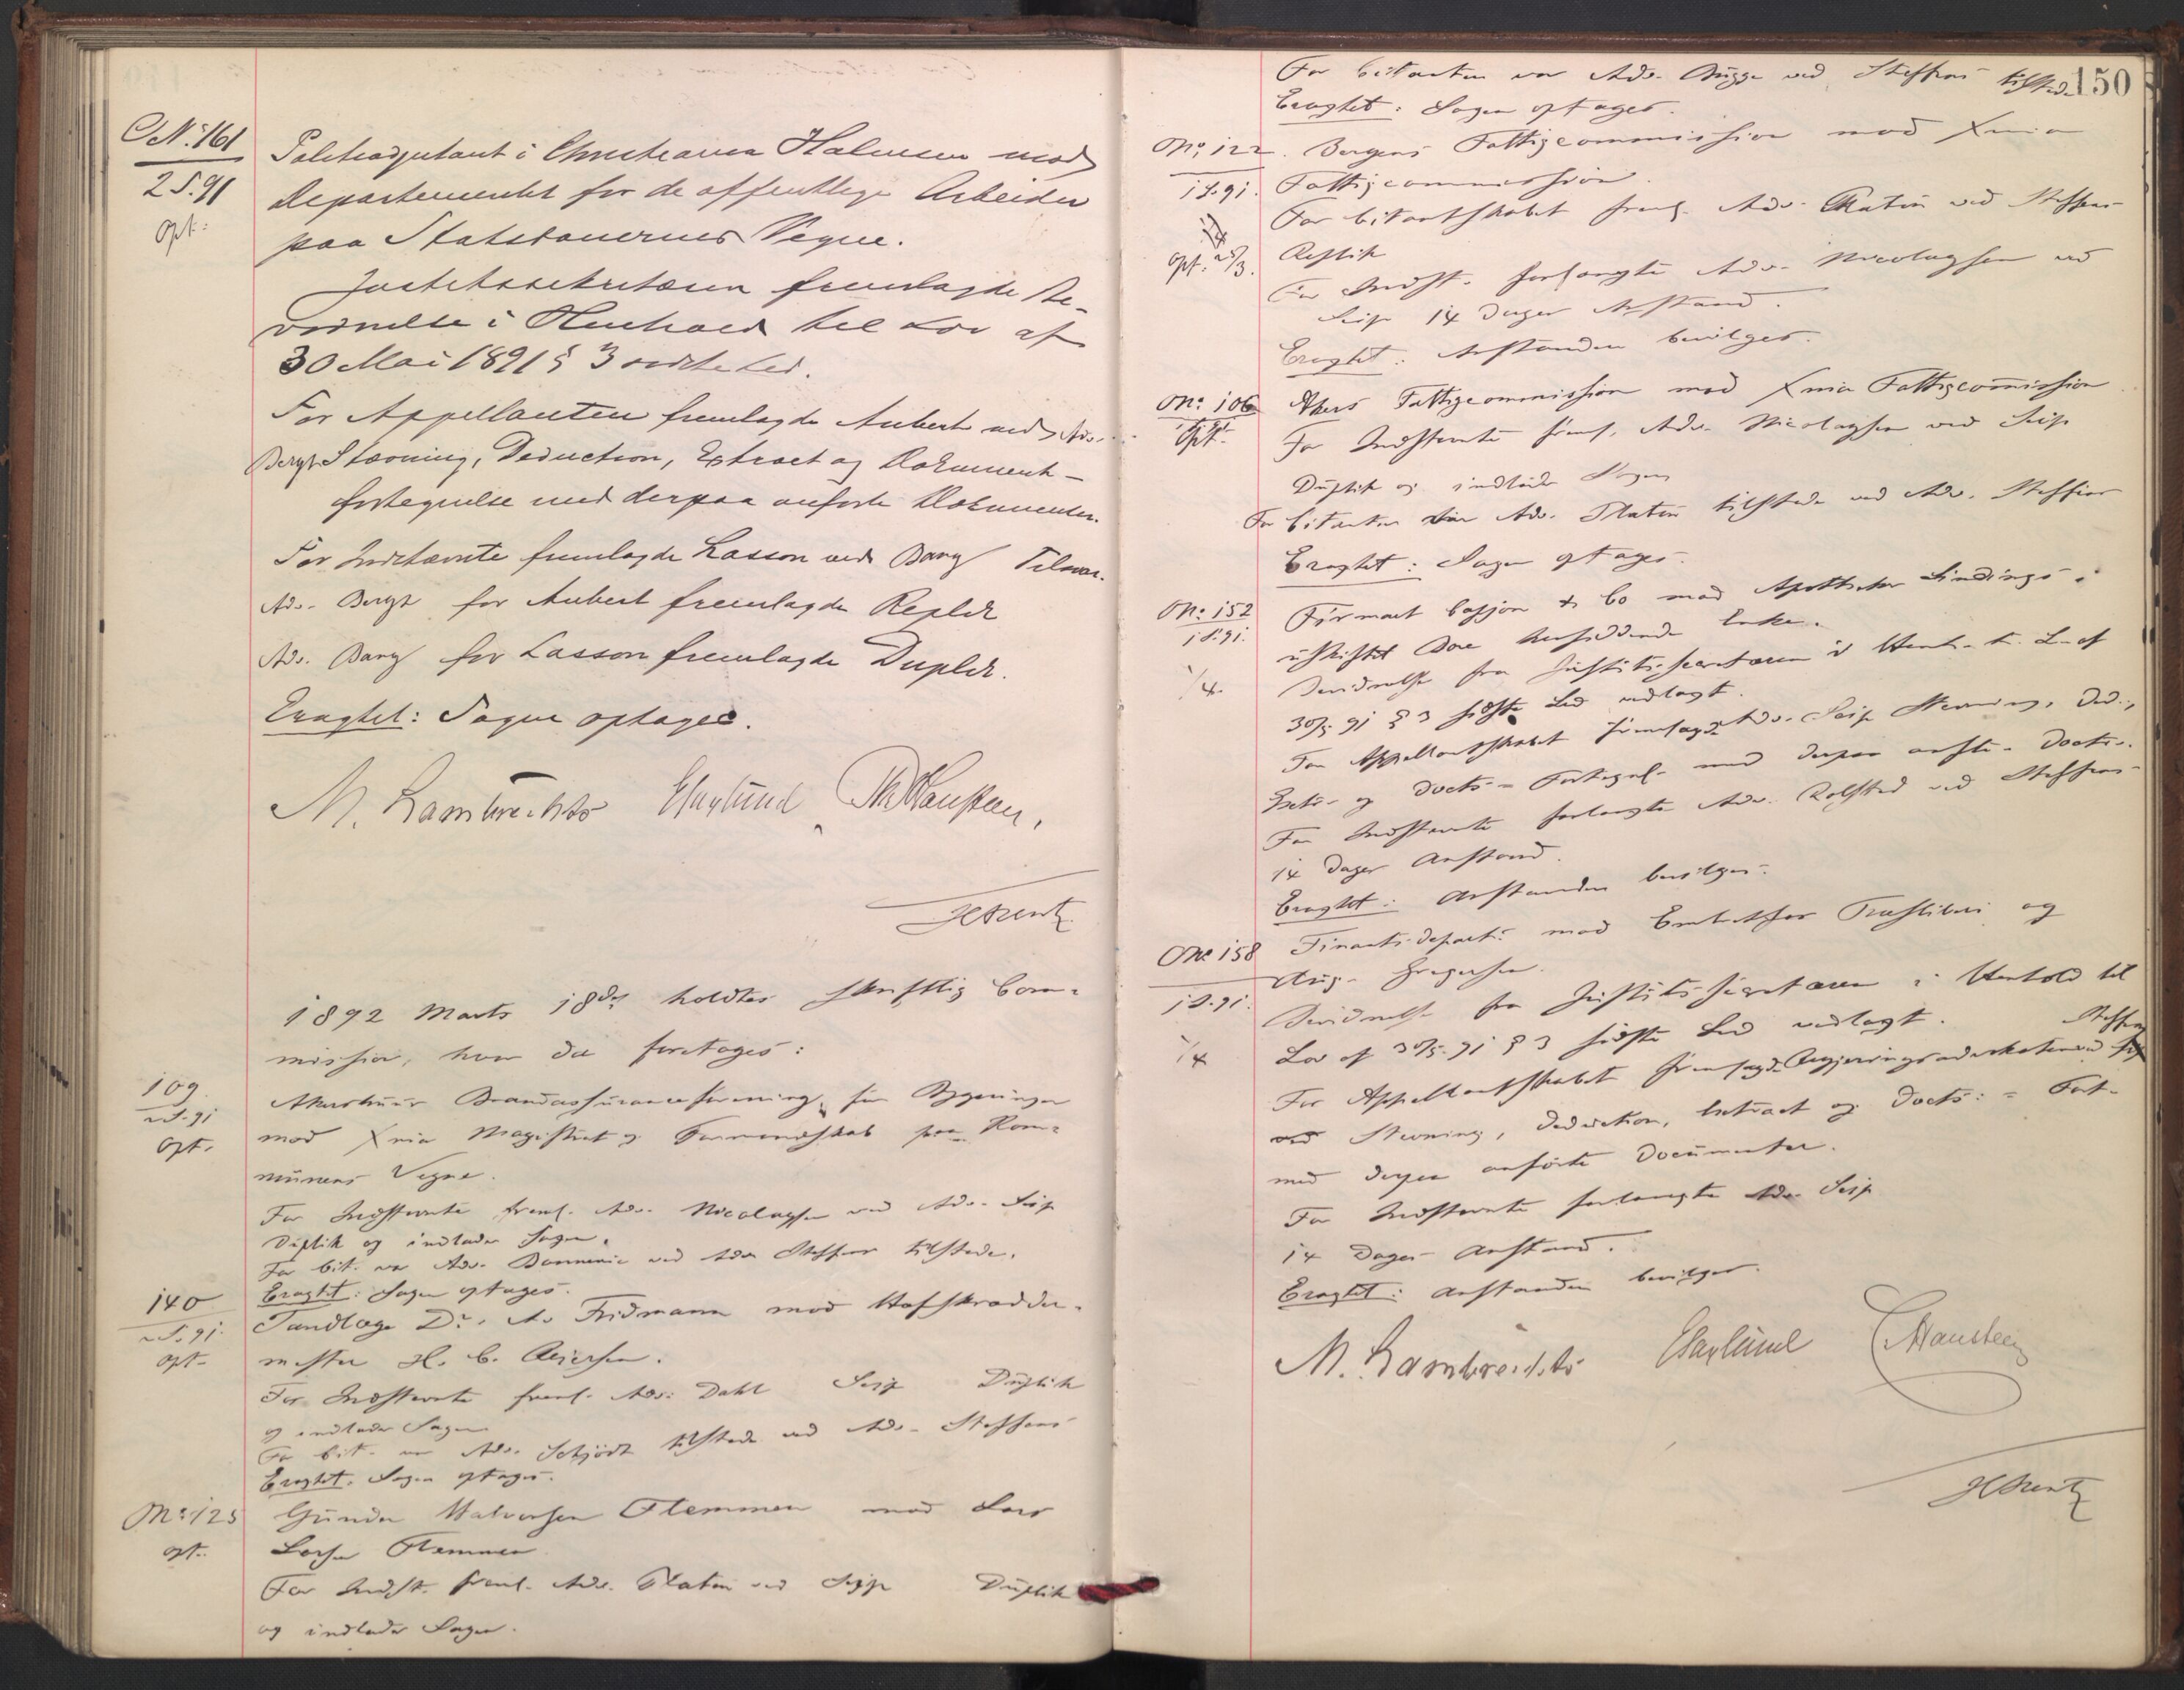 No. 161
2 S. 91
Opt:
Politiadjutant i Christiania Halvorsen mod
Departementet for de offentlige Arbeider
paa Statsbanernes Vegne.
Justitssekretæren fremlagde Be-
vidnelse i Henhold til Lov af
30 Mai 1891 § 3 sidste Led.
For Appellanten fremlagde Aubert ved Adv.
Bergh Stævning, Deduction, Extract og Dokument-
fortegnelse med derpaa anførte Dokumenter.
For Indstævnte fremlagde Lasson ved Bang Tilsvar.
Adv. Bergh for Aubert fremlagde Replik
Adv. Bang for Lasson fremlagde Duplik.
Eragtet: Sagen optages.
M. Lambrechts Haslund Hansteen.
1892 Marts 18de holdtes skriftlig Com-
mission, hvor da foretoges:
109
2 S. 91
Opt.
Akershuus Brandassuranceforening for Bygninger
mod Xnia Magistrat og Formandskab paa Kom-
munens Vegne.
For Indstevnte freml. Adv. Nicolaysen ved Adv. Seip
Duplik og indlader Sagen.
For Cit. var Adv. ved Adv. Steffens tilstede.
Eragtet: Sagen optages.
140
2 S. 91.
opt.
Tandlæge Dr. A. Fridmann mod Hofskrædder-
mester H. C. Reiersen.
For Indstevnte freml. Adv. Dahl Seip Duplik
og indlader Sagen
For Cit. var Adv. Schjødt tilstede ved Adv. Steffens
Eragtet. Sagen optages.
No. 125
opt.
Gunder Halvorsen Flemmen mod Lars
Larsen Flemmen
For Indst. freml. Adv. Platou ved Seip Duplik
og indlader Sagen.
150
For Citanten var Adv. Bugge ved Steffens tilstede
Eragtet: Sagen optages.
No. 122
1 S. 91.
Opt. 25/3.
Bergens Fattigcommission mod Xnia
Fattigcommission.
For Citantskabet freml. Adv. Platou ved Steffens
Replik
For Indst. forlangte Adv. Nicolaysen ved
Seip 14 Dages Anstand.
Eragtet: Anstanden bevilges.
No. 106
Opt.
Akers Fattigcommission mod Xnia Fattigcommission
For Indstevnte freml. Adv. Nicolaysen ved Seip
Duplik og indlader Sagen
For Citanten var Adv. Platou tilstede ved Adv. Steffens
Eragtet: Sagen optages.
No. 152
1 S. 91.
1/4.
Firmaet & Co mod Apotheker Lindings i
uskiftet Bo hensiddende Enke.
Bevidnelse fra Justitssecretæren i Henh. til L. af
30/5 91 § 3 sidste Led vedlagt.
For Appellantskabet fremlagde Adv. Seip Stevning, Ded.,
Extr. og Docts. Fortegnl. med derpaa anførte Docts.
For Indstevnte forlangte Adv. Rolfsted ved Steffens
14 Dages Anstand.
Eragtet: Anstanden bevilges.
No. 158
1 S. 91.
1/4
Finants-Depart. mod Træsliberi og
Aug. Gregersen.
Bevidnelse fra Justitssecretæren i Henhold til
Lov af 30/5. 91 § 3 sidste Led vedlagt.
For Appellantskabet fremlagde Regjeringsadvokaten ved Steffens
Stevning, Deduction, Extract og Docts: Fort.
med derpaa anførte Documenter.
For Indstevnte forlangte Adv. Seip
14 Dages Anstand.
Eragtet: Anstanden bevilges.
M. Lambrechts Haslund Hansteen